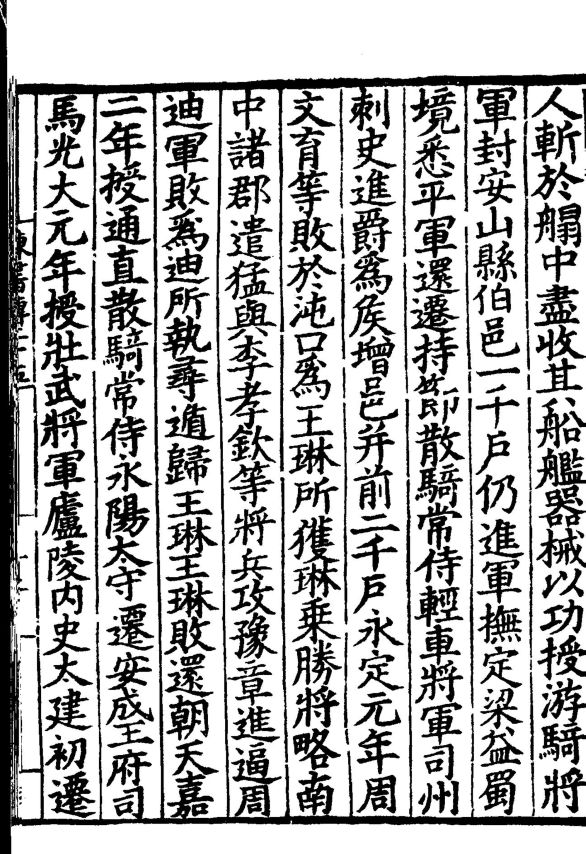 人斬於艒中盡收其船艦器械以功授游騎將
軍封安山縣伯邑一千戶仍進軍撫定梁益蜀
境悉平軍還遷持節散騎常侍輕車將軍司州
刺史進爵爲侯增邑并前二千戶永定元年周
文育等敗於沌口爲王琳所獲琳乗勝將略南
中諸郡遣猛與李孝欽等將兵攻豫章進逼周
迪軍敗爲迪所執尋遁歸王琳王琳敗還朝天嘉
二年授通直散騎常侍永陽太守遷安成王府司
馬光大元年授壯武將軍廬陵内史太建初遷